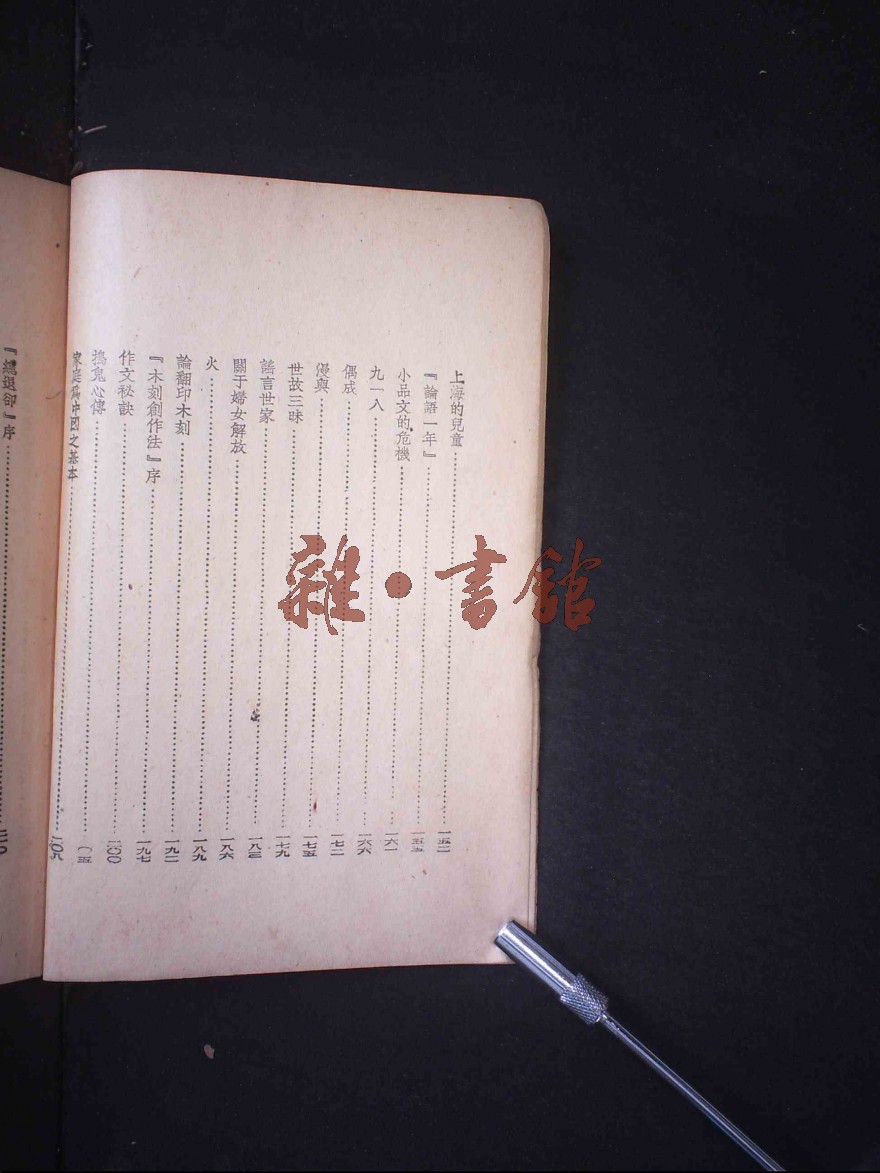 上海的兒童……一五二
『論語一年』……一五五
小品文的危機……一六一
九一八……一六六
偶成……一七二
漫與……一七五
世故三昧……一七九
謠言世家……一八三
關于婦女解放……一八六
火……一八九
論翻印木刻……一九二
『木刻創作法』序……一九七
作文秘訣……二〇〇
搗鬼心傳……〇五
家庭爲中國之基本……二〇九
『總退卻』序……
雜•書館